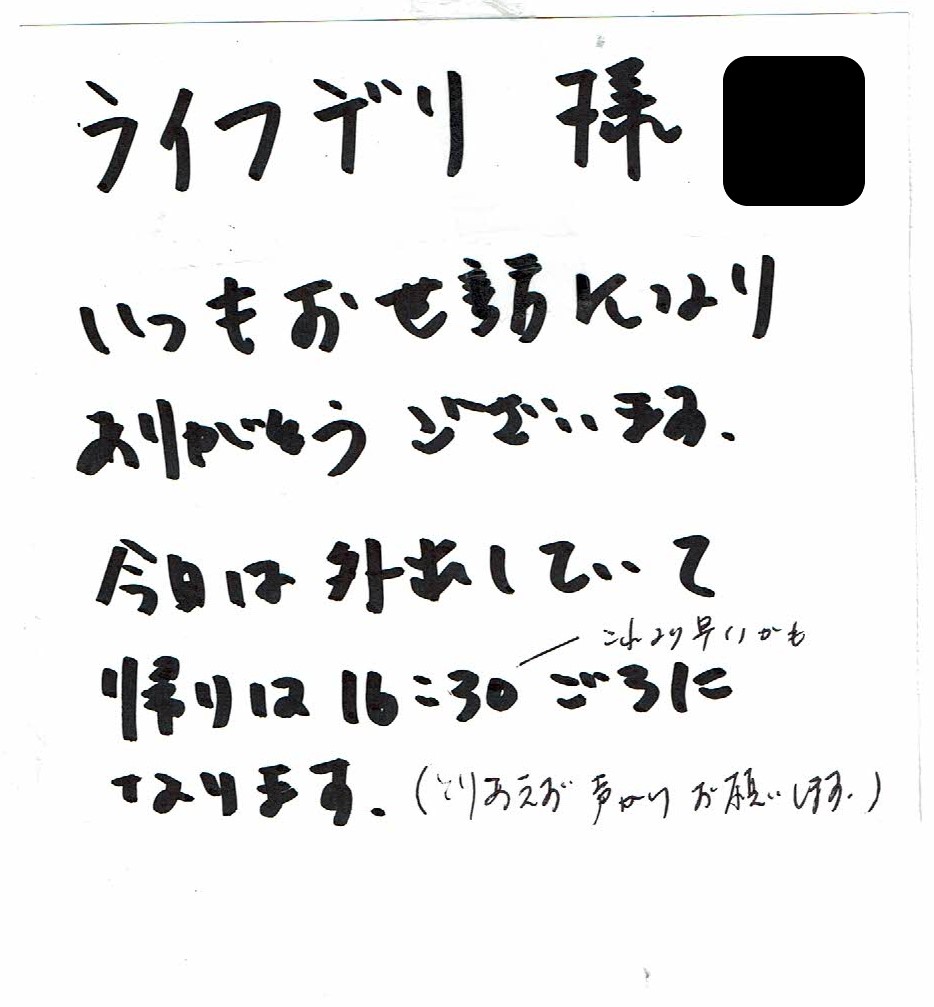 ライフデリ 様
いつもお世話になり
ありがとう ございます.
今日は 外出していて
これより早いかも
帰りは 16:30 ごろに
なります. (とりあえず 声かけ お願いします.)